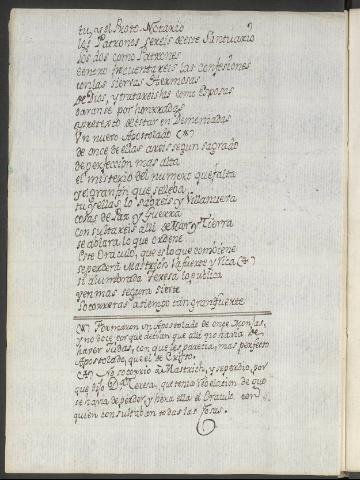 tu, y el Proto Notario
los Patrones sereis deeste Santuario
los dos como Patrones
dentro frecuentareis las confesiones
con las siervas Hermosas
de Dios, y tratareislas como esposas
daranse por honrradas
a pretexto de estar en Demoniadas
Un nuevo Apostolado (*)
de once de ellas areis segun sagrado
de perfección mas alta
el misterio del numero que falta
y el gran fin que se lleba
tu, y ellas lo sabreis y Villanueva
cosas de Paz y Guerra
consultareis alli de Mar, y Tierra
se dolara lo que ordene
Este Oraculo, que es lo que combiene
se perderá Mastrich la fuerte y rica (*)
si alumbrada Teresa lo publica
y en mas segura suerte
socorreras a tiempo tan gran fuerte
(*) Formaron un Apostolado de once Monjas,
y no doce, porque decian que alli no havia de
haver Judas, con que les parecia, mas perfecto
Apostolado, que el de Cristo.
(*) No socorrio a Mastrich, y se perdio, por
que dijo Da. Teresa, que tenia rebelacion de que
se havia de perder, y hera ella el Oraculo, con
quien consultaban todas las cosas.